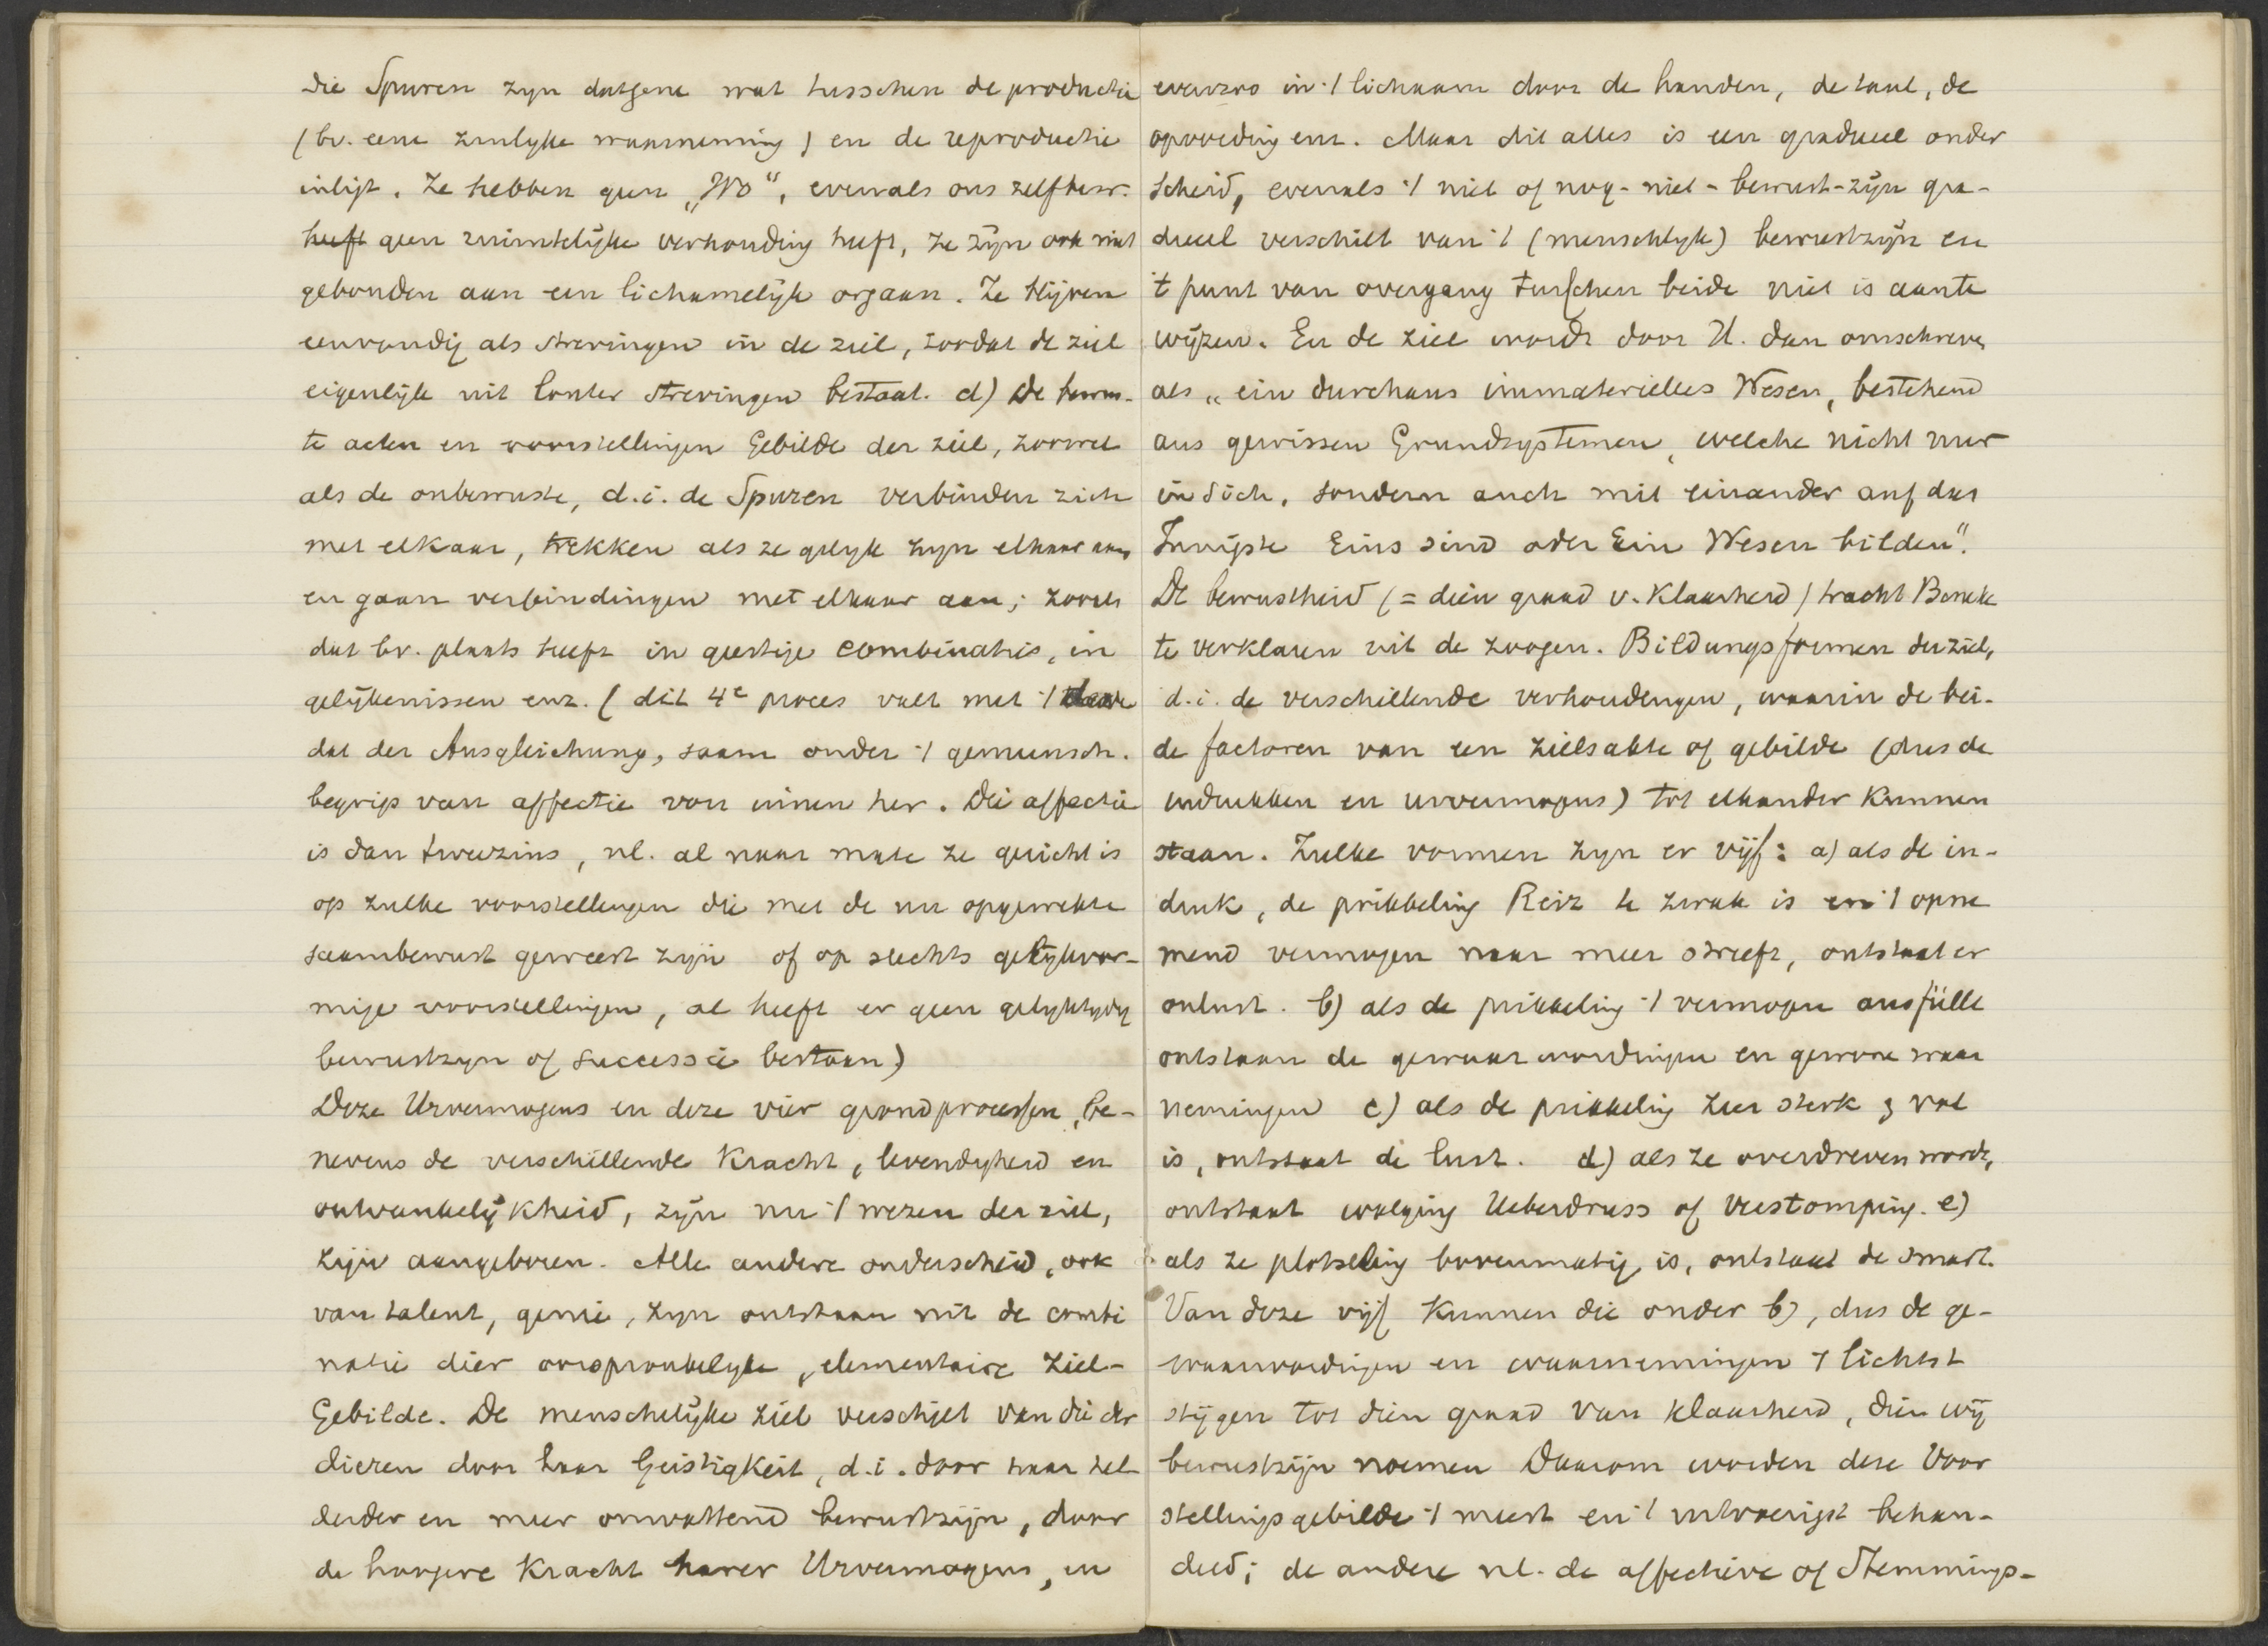 Die Spuren zyn datgene wat tusschen de productie
(bv. eene zinlyke waarneming) en de reproductie
inligt. Ze hebben geen „Wo“, evenals ons zelfbew.
heeft geen ruimtelijke verhouding heeft, ze zijn ook niet
gebonden aan een lichamelijk orgaan. Ze blijven
eenvoudig als strevingen in de ziel, zoodat de ziel
eigenlijk uit louter strevingen bestaat. d) De bewus-
te acten en voorstellingen Gebilde der ziel, zoowel
als de onbewuste, d.i. de Spuren verbinden zich
met elkaar, trekken als ze gelyk zyn elkaar aan
en gaan verbindingen met elkaar aan; zooals
dat bv. plaats heeft in geestige combinatie, in
gelijkenissen enz. (dit 4e proces valt met 't
dat der Ausgleichung, saam onder 't gemeensch.
begrip van affectie von innen her. Die affectie
is dan tweezins, nl. al naar mate ze gericht is
op zulke voorstellingen die met de nu opgewekte
saambewust geweest zijn of op slechts gelijkvor-
mige voorstellingen, al heeft er geen gelyktydig
bewustzyn of successie bestaan)
Deze Urvermogens en deze vier grondprocessen, be-
nevens de verschillende Kracht, levendigheid en
ontvankelijkheid, zijn nu 't wezen der ziel,
zijn aangeboren. Alle andere onderscheid, ook
van talent, genie, zyn ontstaan uit de combi
natie dier oorspronkelyke, elementaire ziel-
Gebilde. De menschelijke ziel verschilt van die der
dieren door haar Geistigkeit, d.i. door haar hel-
derder en meer omvattend bewustzijn, door
de hoogere Kracht harer Urvermogens, en
evenzoo in 't lichaam door de handen, de taal, de
opvoeding enz. Maar dit alles is een gradueel onder
scheid, evenals 't niet of nog-niet-bewust-zijn gra-
dueel verschilt van 't (menschlyk) bewustzijn en
't punt van overgang tusschen beide niet is aan te
wijzen. En de ziel wordt door U. dan omschreven
als „ein durchaus immaterielles Wesen, bestehend
aus gewissen Grundsystemen, welche nicht nur
in sich, sondern auch mit einander auf das
Innigste Eins sind oder Ein Wesen bilden“.
De bewustheid (= dien graad v. Klaarheid) tracht Beneke
te verklaren uit de zoogen. Bildungsformen der ziel,
d.i. de verschillende verhoudingen, waarin de bei-
de factoren van een zielsakte of gebilde (dus de
indrukken en urvermogens) tot elkander kunnen
staan. Zulke vormen zyn er vijf: a) als de in-
druk, de prikkeling Reiz te zwak is en 't opne
mend vermogen naar meer streeft, ontstaat er
onlust. b) als de prikkeling 't vermogen ausfüllt
ontstaan de gewaarwordingen en gewone waar
nemingen c) als de prikkeling zeer sterk & vol
is, ontstaat de lust. d) als ze overdreven wordt,
ontstaat walging Ueberdruss of verstomping. e)
als ze plotseling bovenmatig is, ontstaat de smart.
Van deze vijf kunnen die onder b), dus de ge-
waarwordingen en waarnemingen 't lichtst
stijgen tot dien graad van klaarheid, dien wij
bewustzijn noemen Daarom worden deze Voor
stellingsgebilde 't meest en 't uitvoerigst behan-
deld; de andere nl. de affectieve of Stemmings-